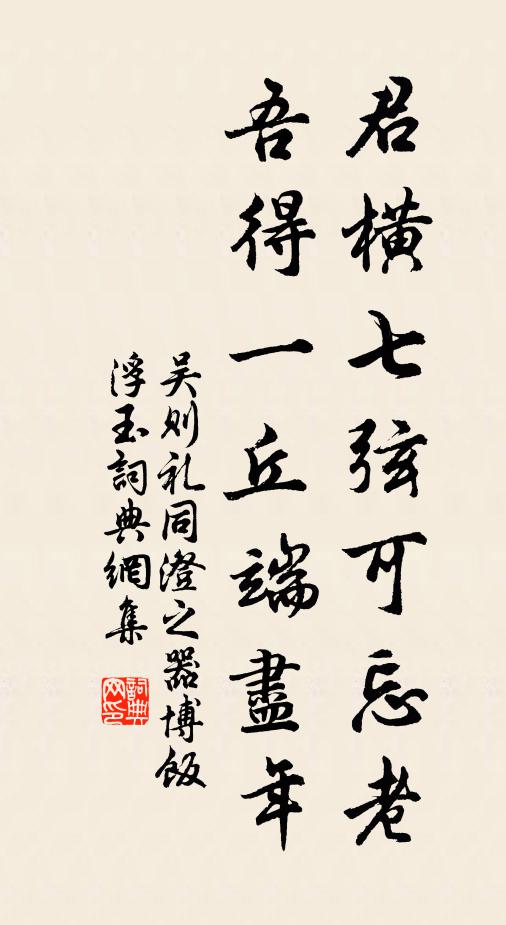 君橫七弦可忘老
吾得一丘端盡年
吴则礼同澄之器博饭
浮玉詞典網集
詞典网印